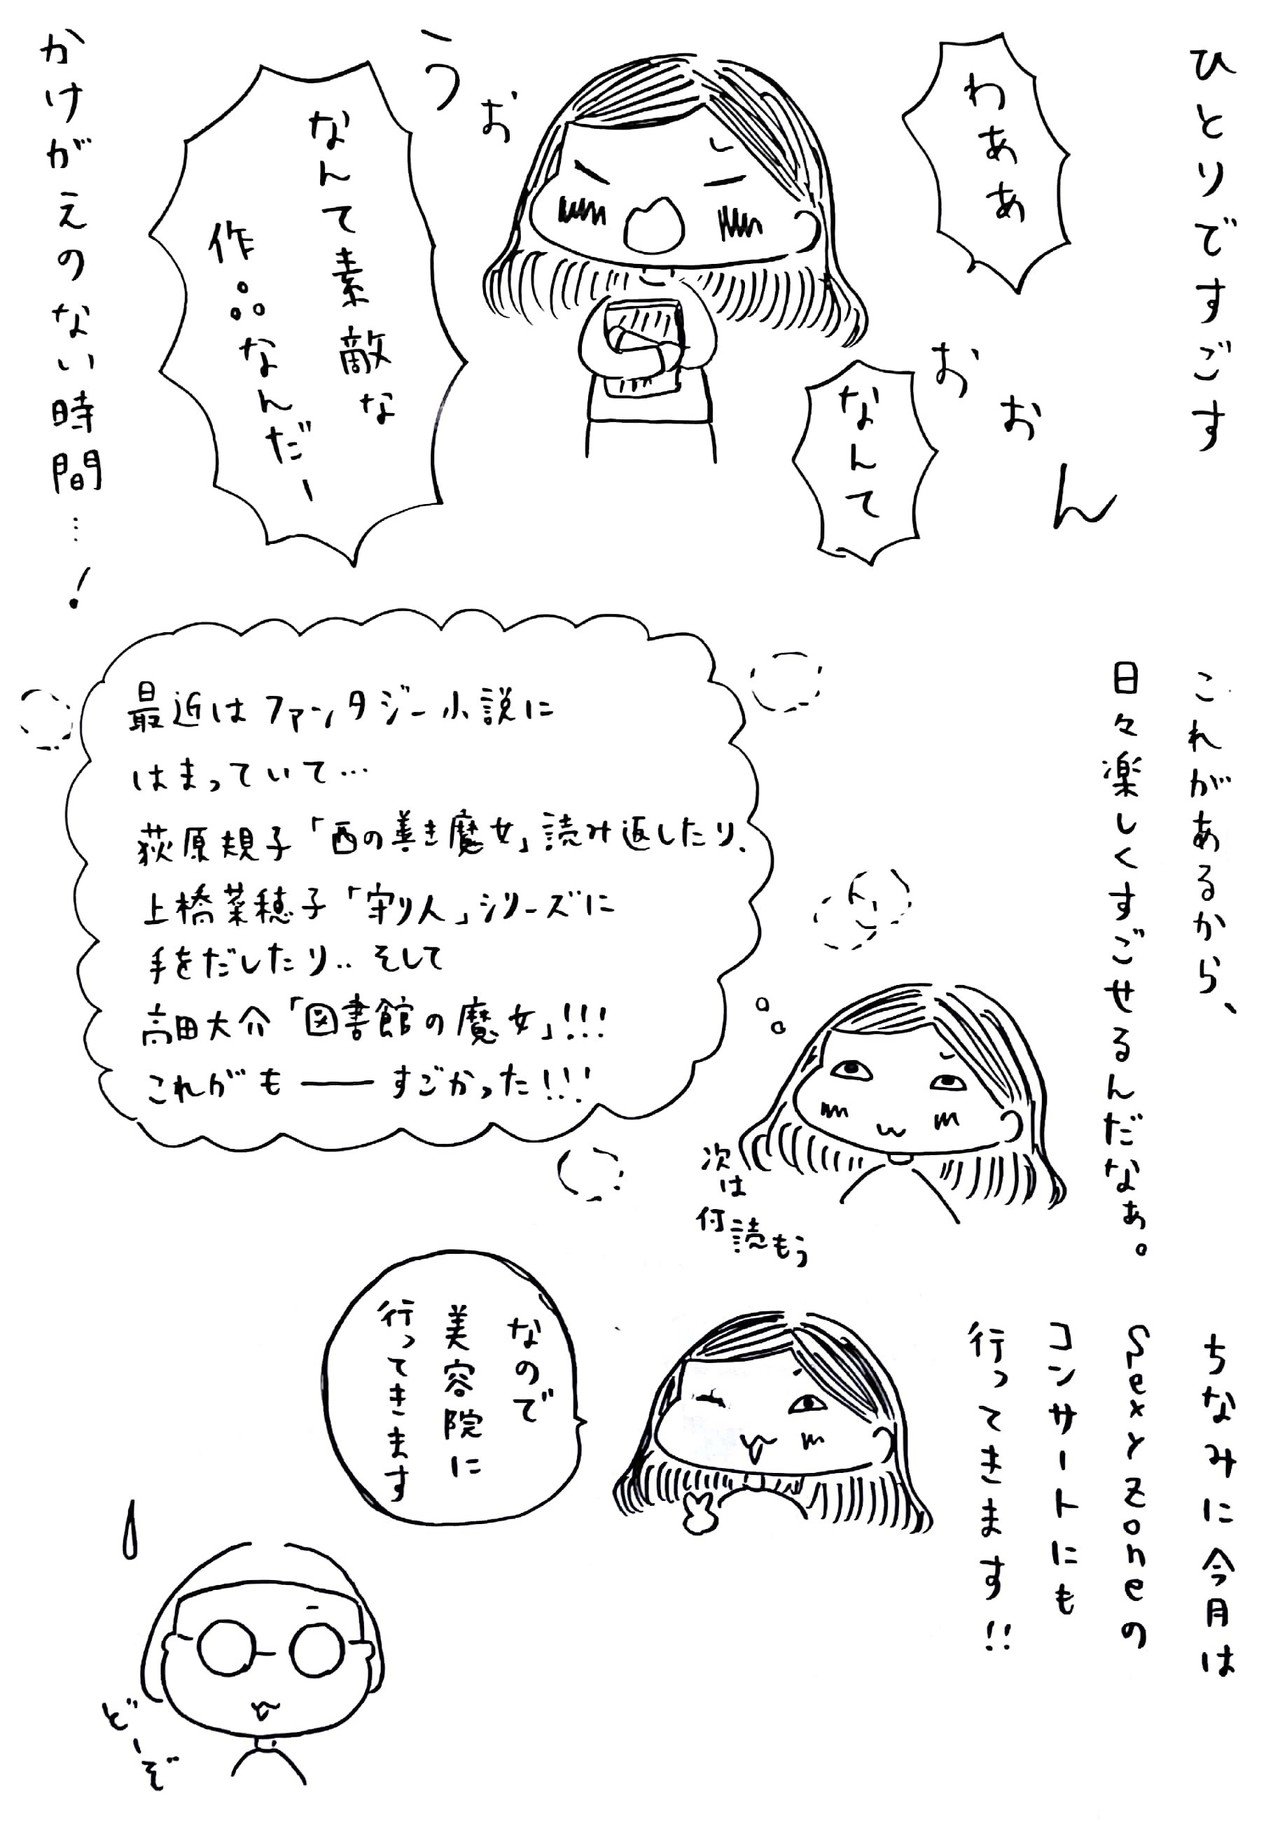 ひとりですごす
わああ
うぉ
おおん
なんて
なんて素敵な
作品なんだー
かけがえのない時間…!
これがあるから、
日々楽しくすごせるんだなぁ。
最近はファンタジー小説に
はまっていて…
荻原規子「西の善き魔女」読み返したり、
上橋菜穂子「守り人」シリーズに
手をだしたり‥そして
高田大介「図書館の魔女」!!!
これがもーーすごかった!!!
次は
何読もう
ちなみに今月は
Sexy Zoneの
コンサートにも
行ってきます!!
なので
美容院に
行ってきます
どーぞ